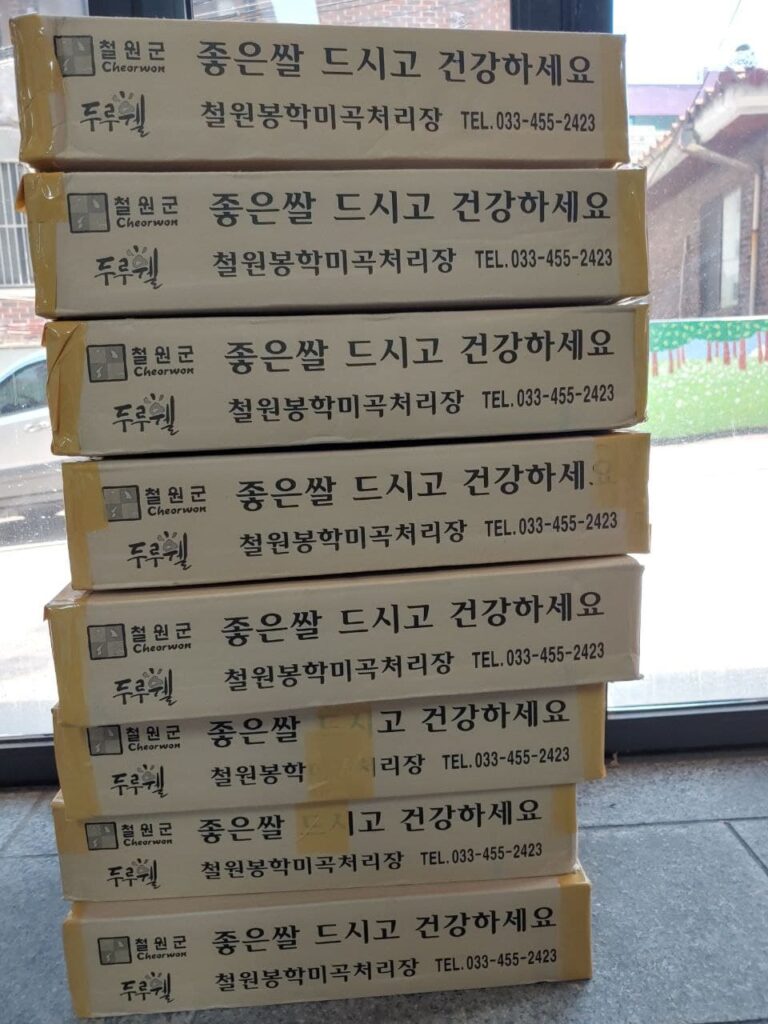 철원군 좋은쌀 드시고 건강하세요
Cheorwon
두루웰 철원봉학미곡처리장 TEL.033-455-2423
철원군 좋은쌀 드시고 건강하세요
Cheorwon
두루웰 철원봉학미곡처리장 TEL.033-455-2423
철원군 좋은쌀 드시고 건강하세요
Cheorwon
두루웰 철원봉학미곡처리장 TEL.033-455-2423
철원군 좋은쌀 드시고 건강하세요
Cheorwon
두루웰 철원봉학미곡처리장 TEL.033-455-2423
철원군 좋은쌀 드시고 건강하세요
Cheorwon
두루웰 철원봉학미곡처리장 TEL.033-455-2423
철원군 좋은쌀 드시고 건강하세요
Cheorwon
두루웰 철원봉학 처리장 TEL.033-455-2423
철원군 좋은쌀 드시고 건강하세요
Cheorwon
두루웰 철원봉학미곡처리장 TEL.033-455-2423
철원군 좋은쌀 드시고 건강하세요
Cheorwon
두루웰 철원봉학미곡처리장 TEL.033-455-2423